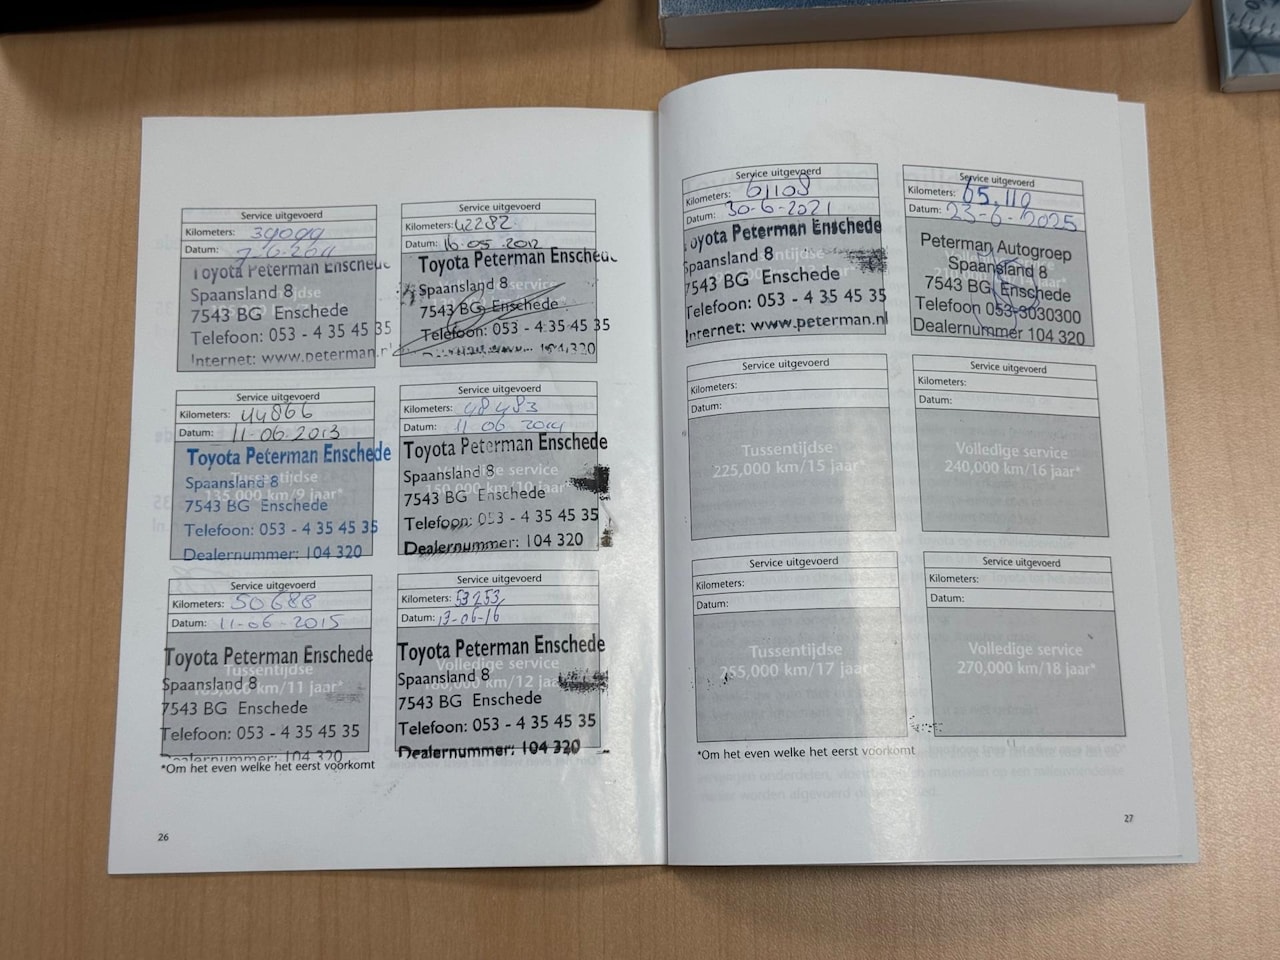 Service uitgevoerd
Kilometers: 39099
Datum: 7-6-2011
Toyota Peterman Enschede
Spaansland 8
7543 BG Enschede
Telefoon: 053 - 4 35 45 35
Internet: www.peterman.n
Service uitgevoerd
Kilometers: 42282
Datum: 16-05 2012
Toyota Peterman Enschede
Spaansland 8
7543 BG Enschede
Telefoon: 053 - 4 35 45 35
104 320
Service uitgevoerd
Kilometers: 44866
Datum: 11-06-2013
Toyota Peterman Enschede
Tussentijdse
Spaansland 8
135,000 km/9 jaar*
7543 BG Enschede
Telefoon: 053 - 4 35 45 35
Dealernummer: 104 320
Service uitgevoerd
Kilometers: 48483
Datum: 11 06 2014
Toyota Peterman Enschede
Volledige service
Spaansland 8
150,000 km/10 jaar*
7543 BG Enschede
Telefoon: 053 - 4 35 45 35
Dealernummer: 104 320
Service uitgevoerd
Kilometers: 50688
Datum: 11-06-2015
Toyota Peterman Enschede
Tussentijdse
Spaansland 8
165,000 km/11 jaar*
7543 BG Enschede
Telefoon: 053 - 4 35 45 35
Dealernummer: 104 320
Service uitgevoerd
Kilometers: 53253
Datum: 13-06-16
Toyota Peterman Enschede
Volledige service
Spaansland 8
180,000 km/12 jaar*
7543 BG Enschede
Telefoon: 053 - 4 35 45 35
Dealernummer: 104 320
*Om het even welke het eerst voorkomt
26
Service uitgevoerd
Kilometers: 61108
Datum: 30-6-2021
Toyota Peterman Enschede
Spaansland 8
7543 BG Enschede
Telefoon: 053 - 4 35 45 35
Internet: www.peterman.nl
Service uitgevoerd
Kilometers: 65.110
Datum: 23-6-2025
Peterman Autogroep
Spaansland 8
7543 BG Enschede
Telefoon 053-3030300
Dealernummer 104 320
Service uitgevoerd
Kilometers:
Datum:
Tussentijdse
225,000 km/15 jaar*
Service uitgevoerd
Kilometers:
Datum:
Volledige service
240,000 km/16 jaar*
Service uitgevoerd
Kilometers:
Datum:
Tussentijdse
255,000 km/17 jaar*
Service uitgevoerd
Kilometers:
Datum:
Volledige service
270,000 km/18 jaar*
*Om het even welke het eerst voorkomt
27